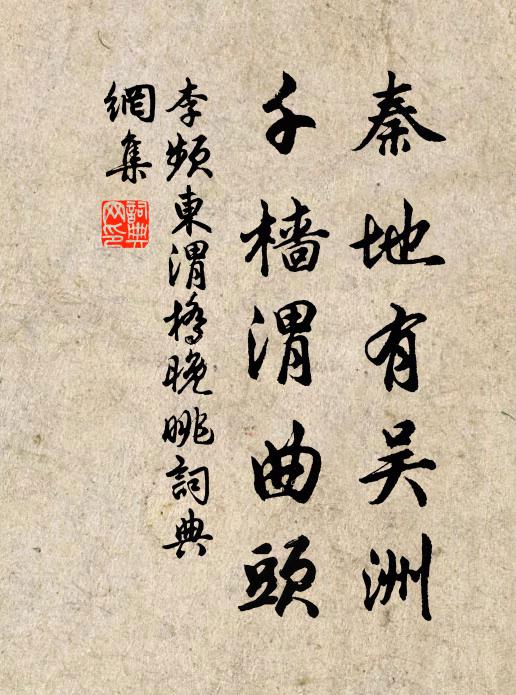 秦地有吴洲
千檣渭曲頭
李頻東渭橋晚眺詞典
網集
詞典
网印